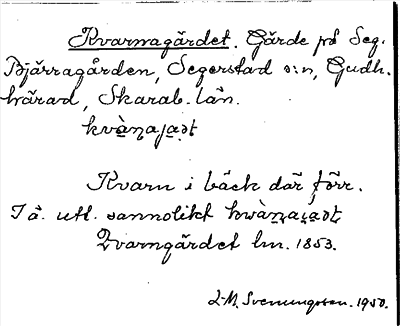 Kvarnagärdet. Gärde på Seg.
Bjärragården, Segerstad s:n, Gudh.
härad, Skarab. län.
kvànaja̱ət
Kvarn i bäck där förr.
I ä. utt. sannolikt
Qvarngärdet lm. 1853.
L-M. Svenungsson. 1950.